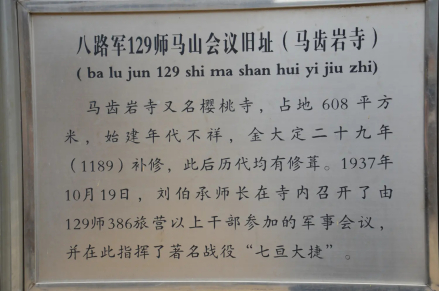 八路军129师马山会议旧址（马齿岩寺）
( ba lu jun 129 shi ma shan hui yi jiu zhi)
马齿岩寺又名樱桃寺，占地 608 平方
米，始建年代不祥，金大定二十九年
（1189）补修，此后历代均有修葺。1937年
10月19日，刘伯承师长在寺内召开了由
129师386旅营以上干部参加的军事会议，
并在此指挥了著名战役“七亘大捷”。